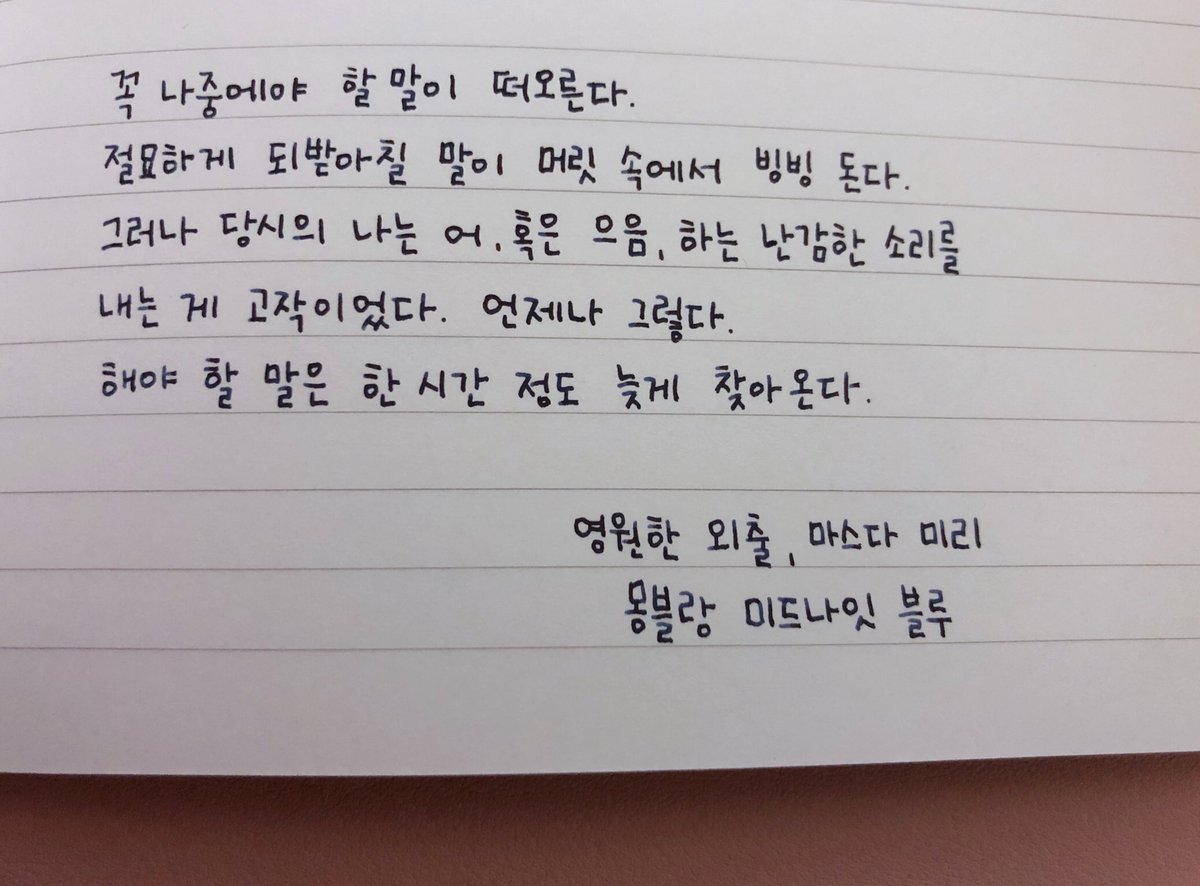 꼭 나중에야 할 말이 떠오른다.
절묘하게 되받아칠 말이 머릿 속에서 빙빙 돈다.
그러나 당시의 나는 어, 혹은 으음, 하는 난감한 소리를
내는 게 고작이었다. 언제나 그렇다.
해야 할 말은 한 시간 정도 늦게 찾아온다.
영원한 외출, 마스다 미리
몽블랑 미드나잇 블루